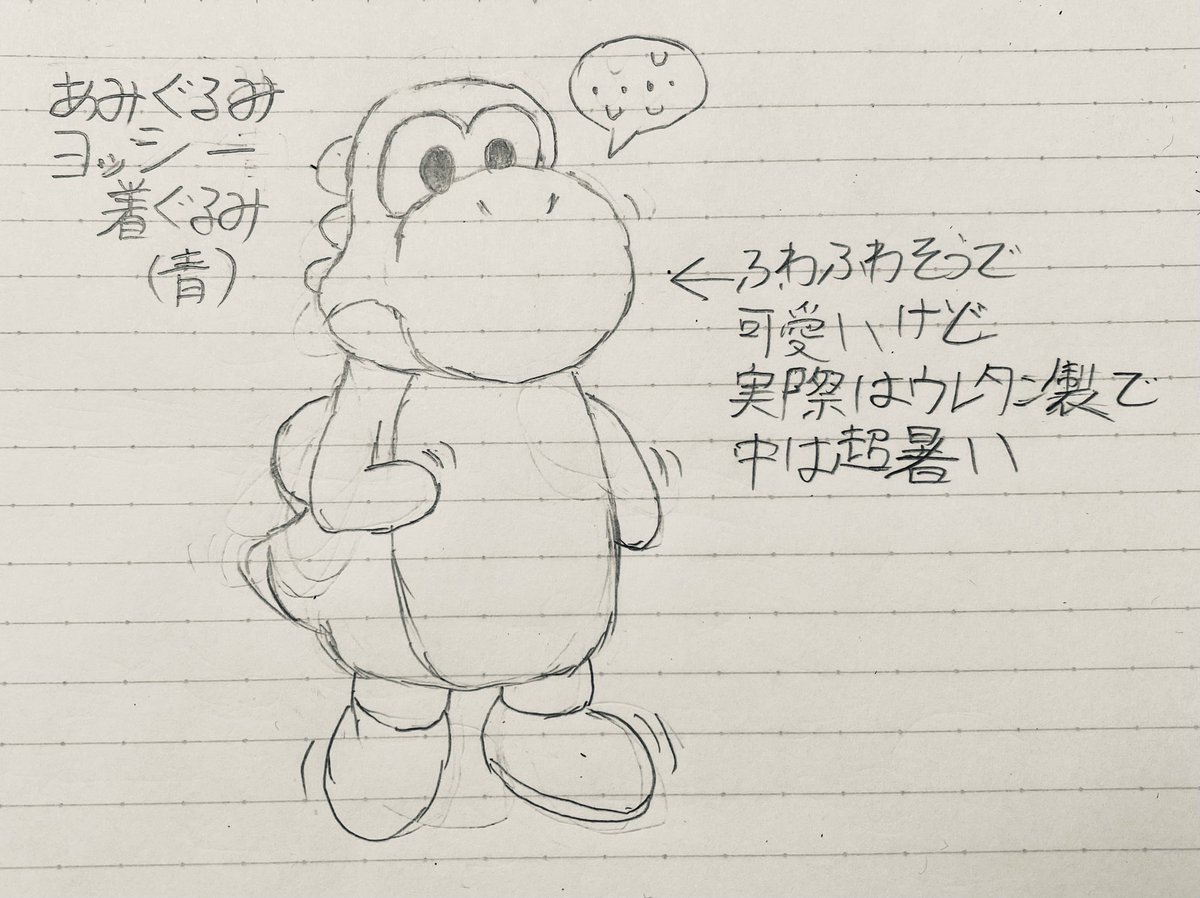 あみぐるみ
ヨッシー
着ぐるみ
(青)
←ふわふわそうで
可愛いけど
実際はウレタン製で
中は超暑い